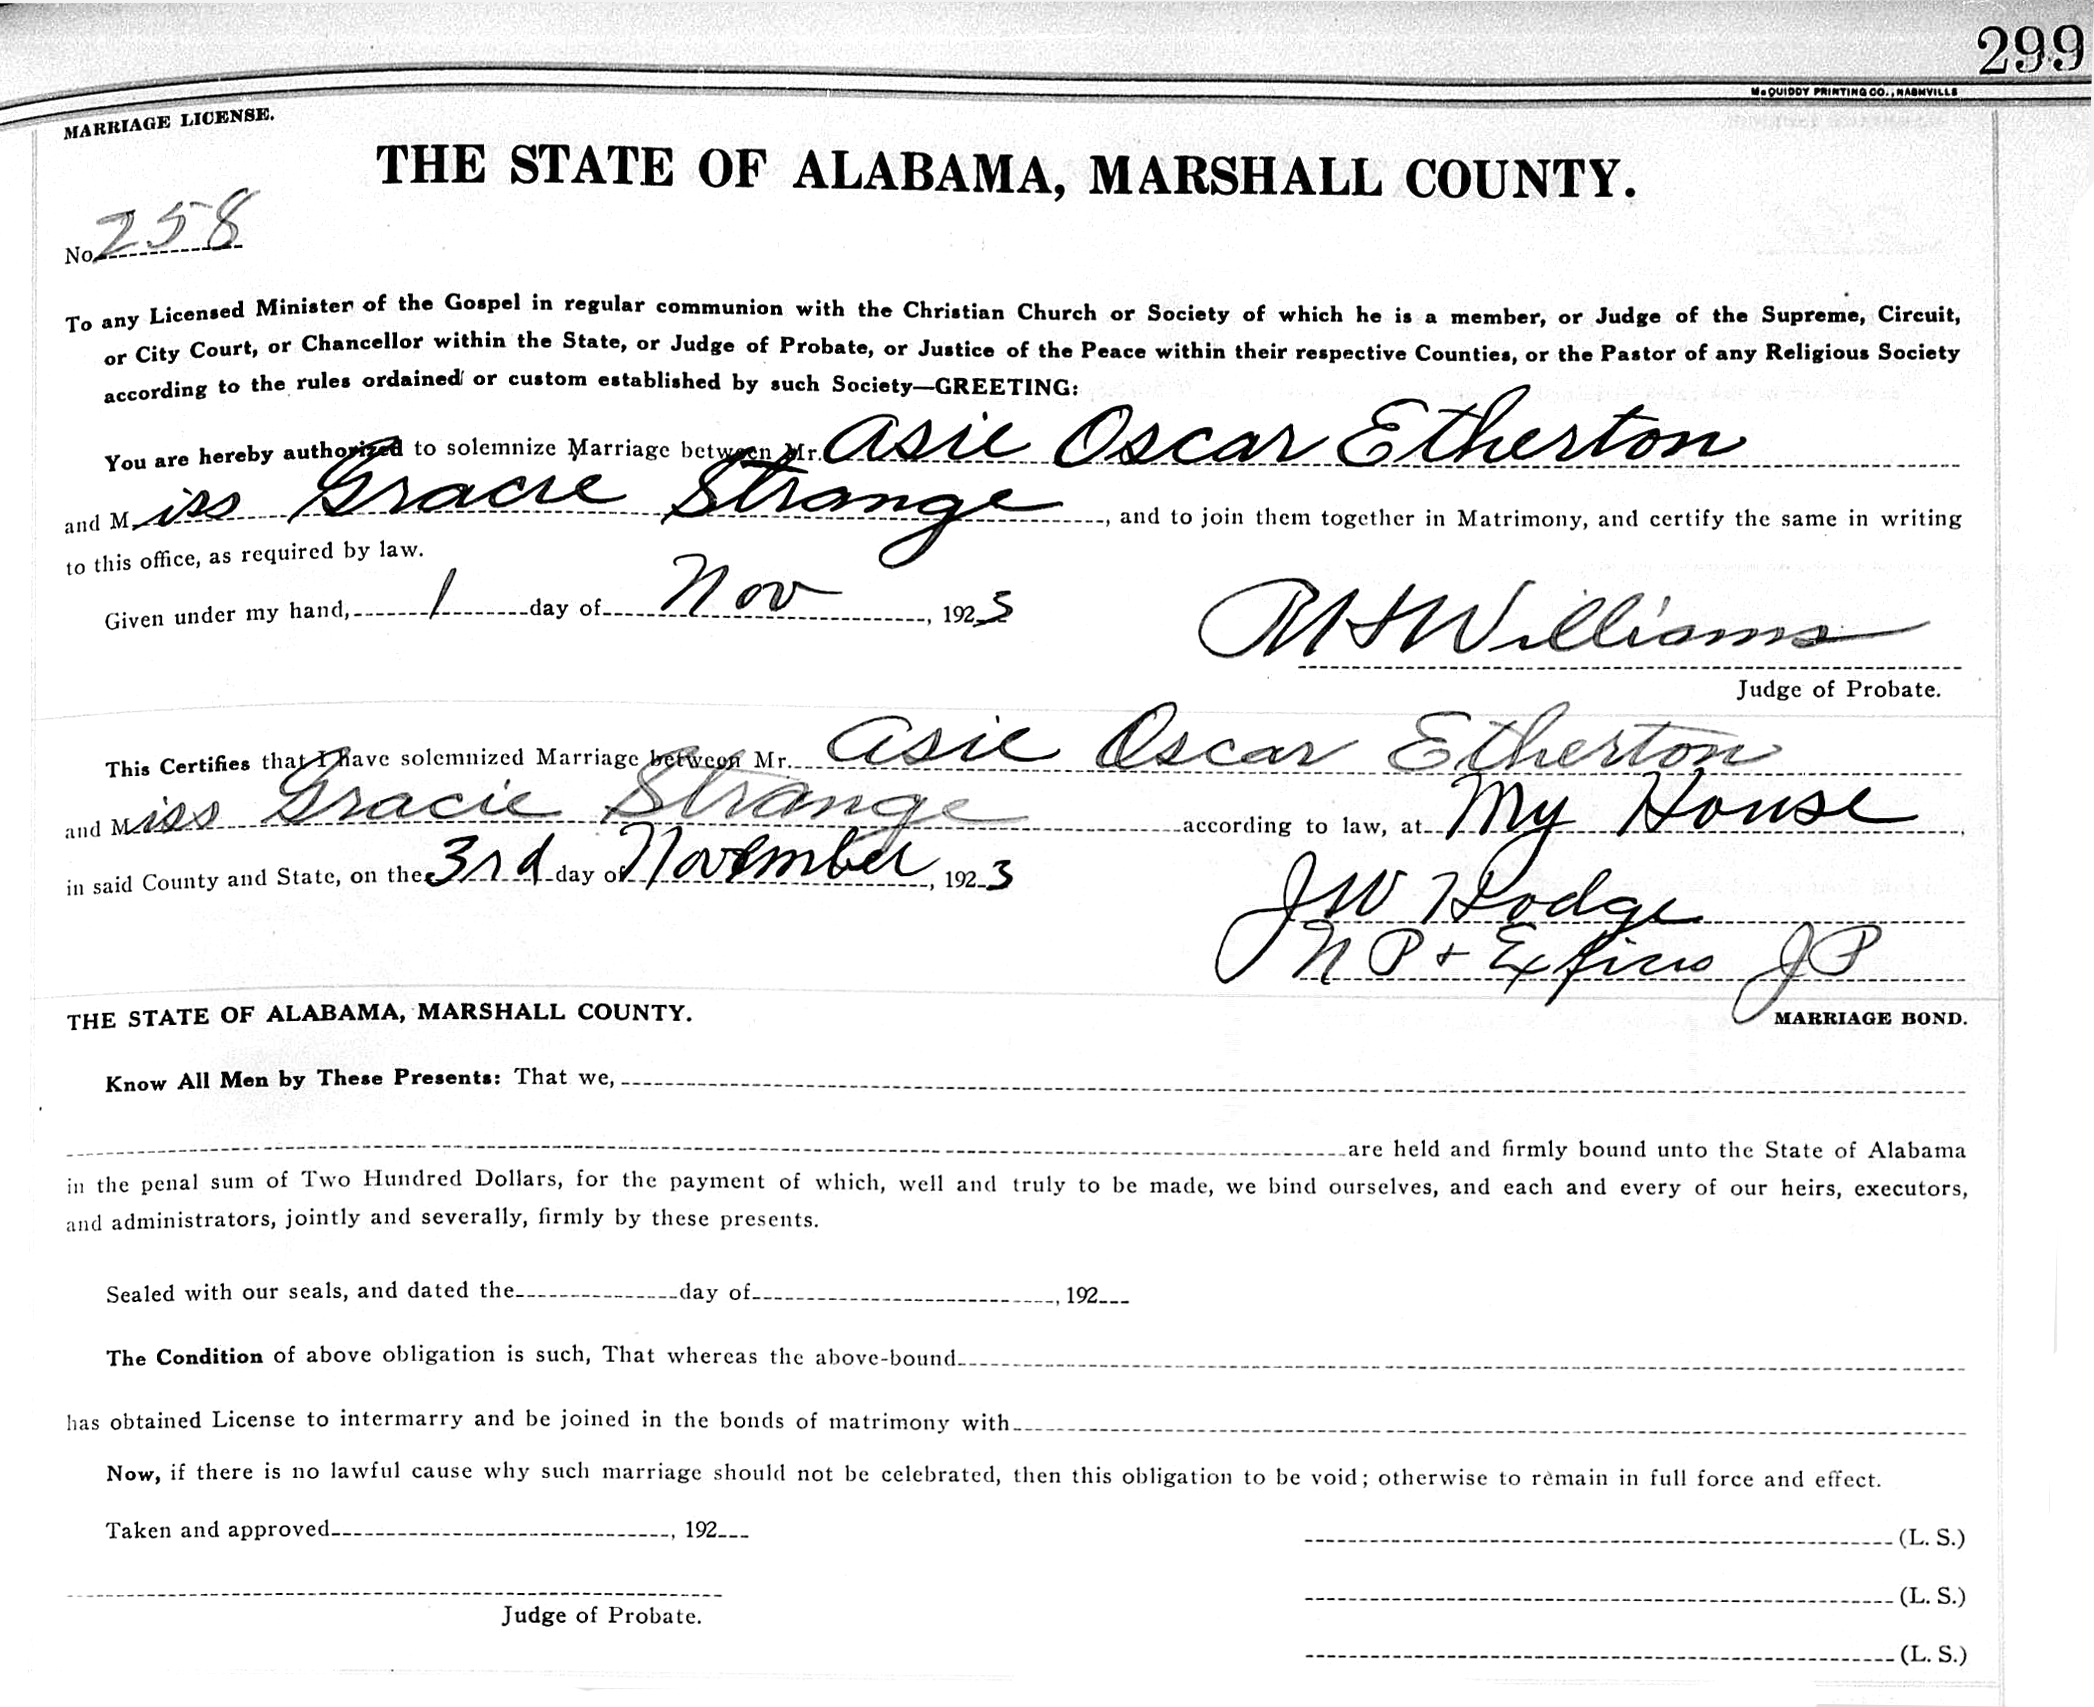 299
McQUIDDY PRINTING CO., NASHVILLE
MARRIAGE LICENSE.
THE STATE OF ALABAMA, MARSHALL COUNTY.
No. 258
To any Licensed Minister of the Gospel in regular communion with the Christian Church or Society of which he is a member, or Judge of the Supreme, Circuit,
or City Court, or Chancellor within the State, or Judge of Probate, or Justice of the Peace within their respective Counties, or the Pastor of any Religious Society
according to the rules ordained or custom established by such Society—GREETING:
You are hereby authorized to solemnize Marriage between Mr. Asie Oscar Etherton
and Miss Gracie Strange, and to join them together in Matrimony, and certify the same in writing
to this office, as required by law.
Given under my hand, 1 day of Nov, 1923
Williams
Judge of Probate.
This Certifies that I have solemnized Marriage between Mr. Asie Oscar Etherton
and Miss Gracie Strange according to law, at My House,
in said County and State, on the 3rd day of November, 1923
J W Hodge
N P + Exficio J P
THE STATE OF ALABAMA, MARSHALL COUNTY.
MARRIAGE BOND.
Know All Men by These Presents: That we,
are held and firmly bound unto the State of Alabama
in the penal sum of Two Hundred Dollars, for the payment of which, well and truly to be made, we bind ourselves, and each and every of our heirs, executors,
and administrators, jointly and severally, firmly by these presents.
Sealed with our seals, and dated the day of , 192
The Condition of above obligation is such, That whereas the above-bound
has obtained License to intermarry and be joined in the bonds of matrimony with
Now, if there is no lawful cause why such marriage should not be celebrated, then this obligation to be void; otherwise to remain in full force and effect.
Taken and approved , 192
(L. S.)
(L. S.)
Judge of Probate.
(L. S.)